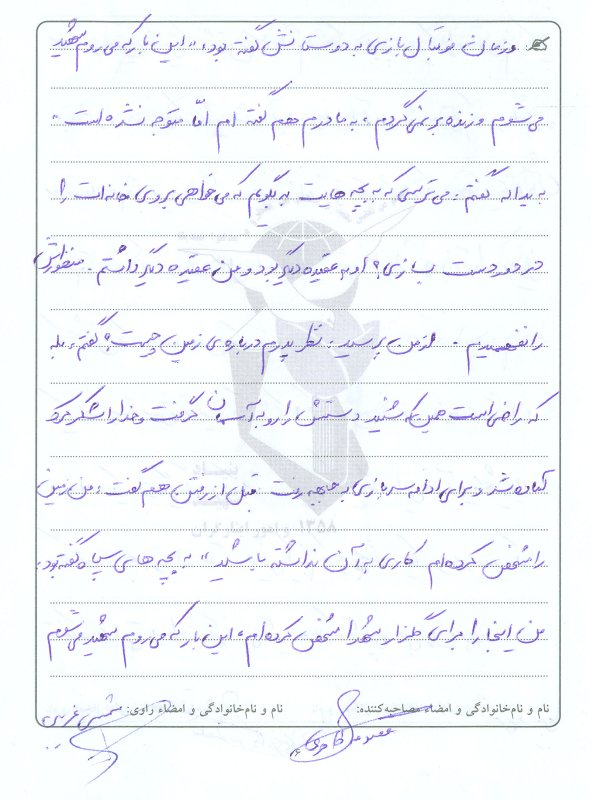 و زمان فوتبال بازی به دوستانش گفته بود: «این بار که می روم شهید
می شوم و زنده بر نمی گردم، به مادرم هم گفته ام امّا متوجه نشده است»
به یداله گفتم: می ترسی که به بچه هایت بگویم که می خواهی بروی خانه ات را
در دوردست بسازی؟ او به عقیده دیگر بود و من عقیده دیگر داشتم. منظورش
را نفهمیدم. از من پرسید: نظر پدرم درباره ی زمین چیست؟ گفتم: بله
که راضی است همین که شنید دستش را رو به آسمان گرفت و خدا را شکر کرد
آماده شد و برای ادامه سربازی به جبهه رفت قبل از رفتن هم گفت: من زمین
را مشخص کرده ام کاری به آن نداشته باشید» به بچه های سپاه گفته بود:
من اینجا را برای گلزار شهدا مشخص کرده ام، این بار که می روم شهید می شوم
نام و نام‌خانوادگی و امضاء مصاحبه‌کننده:
نام و نام‌خانوادگی و امضاء راوی: شمسی
بنیاد
۱۳۵۸